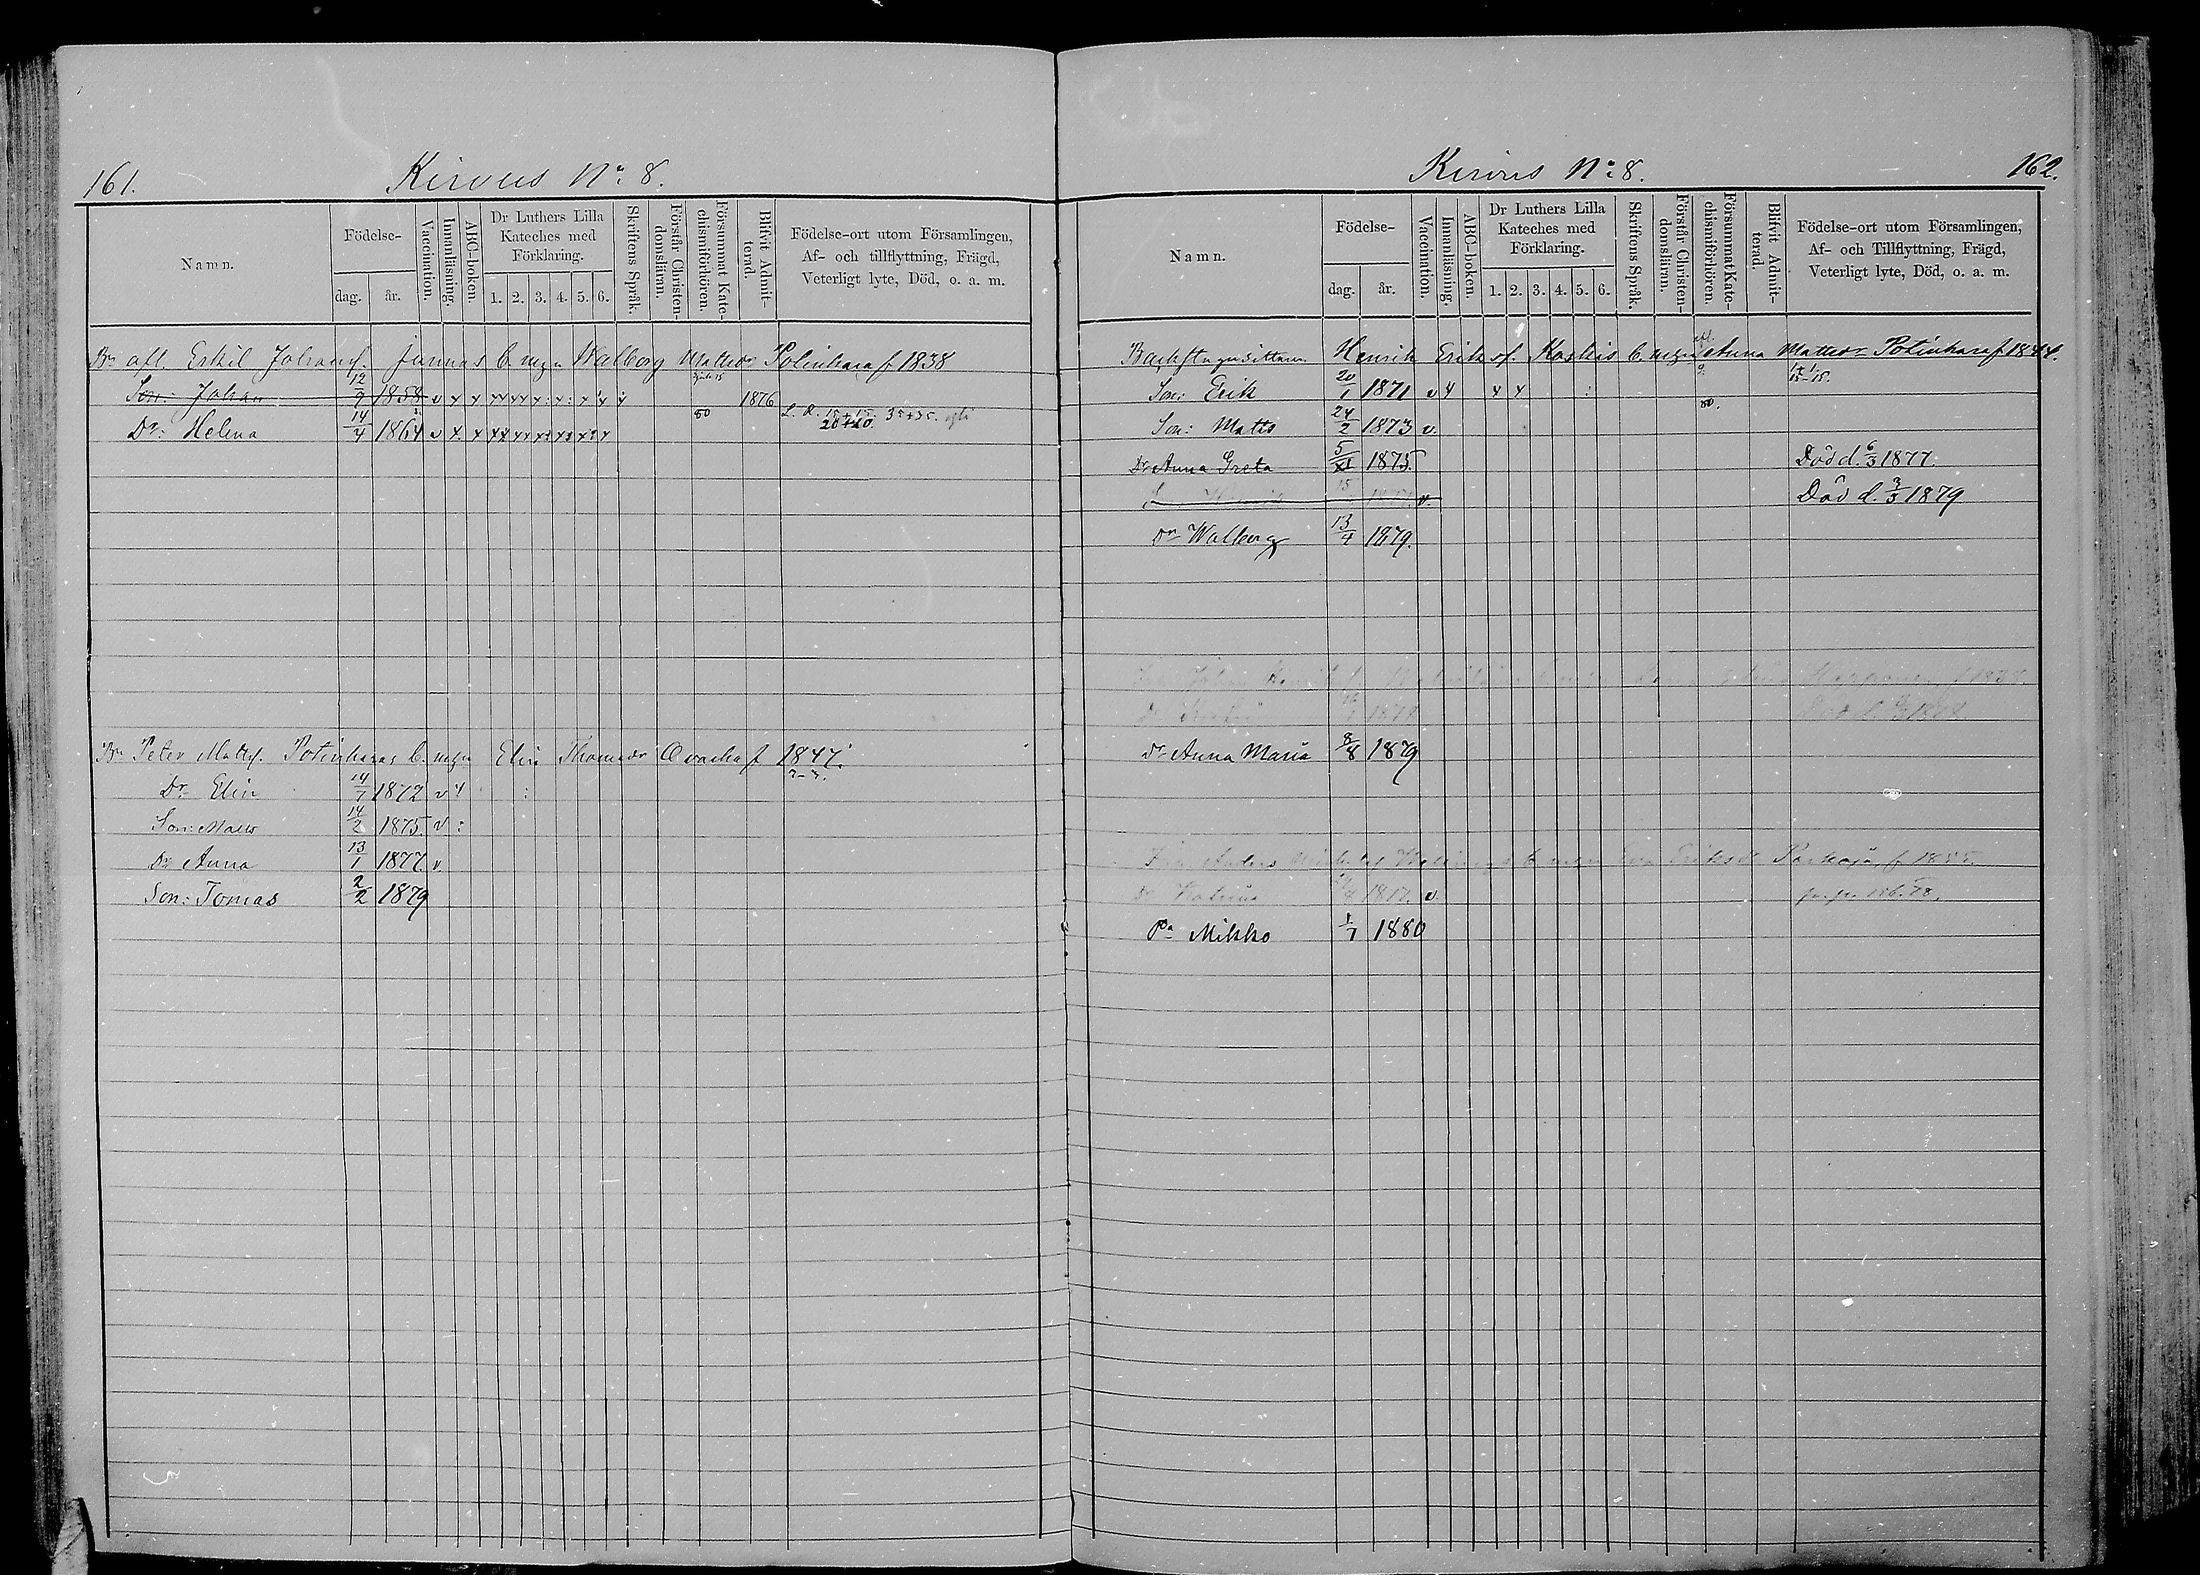 161.
Kirvus No: 8.
Namn.
Födelse-
dag.
år.
Vaccination.
Innanläsning.
ABC-boken.
Dr Luthers Lilla Kateches med Förklaring.
1. 2. 3. 4. 5. 6.
Skriftens Språk.
Förstår Christendomsläran.
Försummat Katechismiförhören.
Blifvit Admitterad.
Födelse-ort utom Församlingen, Af- och tillflyttning, Frägd, Veterligt lyte, Död, o. a. m.
Bn afl. Eskil Johansf. Junnas b. mgn Walborg Mattsdr Potinkara f 1838
Son: Johan 12/9 1858 v x x 1876
Dr: Helena 14/4 1864 v x x 80 35+35.
Bn Peter Mattsf. Potinkaras b. mgn Elin Thomasdr f 1847.
Dr Elin 14/7 1872 v 4
Son: Matts 14/2 1875. v :
Dr Anna 13/1 1877. v.
Son: Tomas 2/2 1879
Kirvus No: 8.
162.
Namn.
Födelse-
dag.
år.
Vaccination.
Innanläsning.
ABC-boken.
Dr Luthers Lilla Kateches med Förklaring.
1. 2. 3. 4. 5. 6.
Skriftens Språk.
Förstår Christendomsläran.
Försummat Katechismiförhören.
Blifvit Admitterad.
Födelse-ort utom Församlingen, Af- och Tillflyttning, Frägd, Veterligt lyte, Död, o. a. m.
Backstugusittaren Henrik Eriksf. Koskis b. mgn afl. Anna Mattsdr Potinkara f 1844.
Son: Erik 20/1 1871 v 4 x x 80.
Son: Matts 24/2 1873 v.
Dr Anna Greta 5/XI 1875. Död d. 6/3 1877.
15 v. Död d. 3/3 1879
Dr Walborg 13/4 1879.
Johan
Dr 1878
Dr Anna Maria 8/8 1879
Anders b. mgn Eva Eriksdr f 1855.
Dr Katrina v
Pa Mikko 1/7 1880